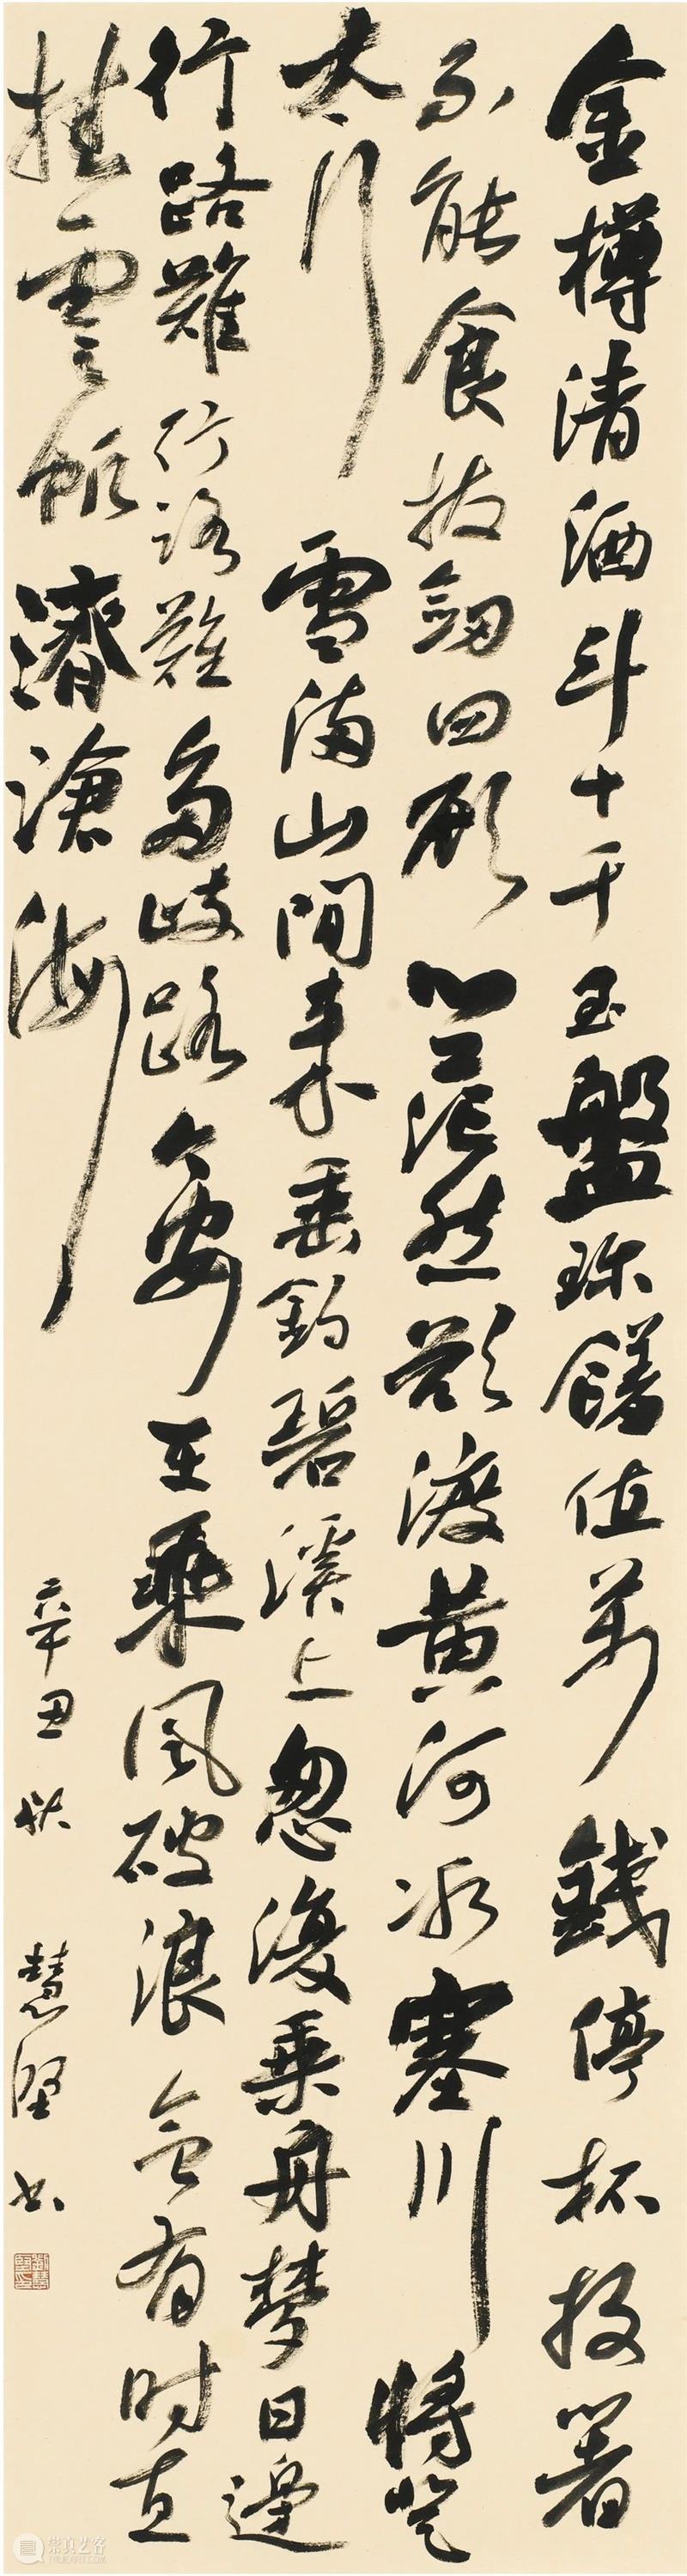 金樽清酒斗十千玉盤珍饈值萬錢停杯投箸
不能食拔劍四顧心茫然欲渡黃河冰塞川將登
太行雪滿山閒來垂釣碧溪上忽復乘舟夢日邊
行路難行路難多歧路今安在乘風破浪會有時直
掛雲帆濟滄海
辛丑秋 慧堅書
崇真艺客